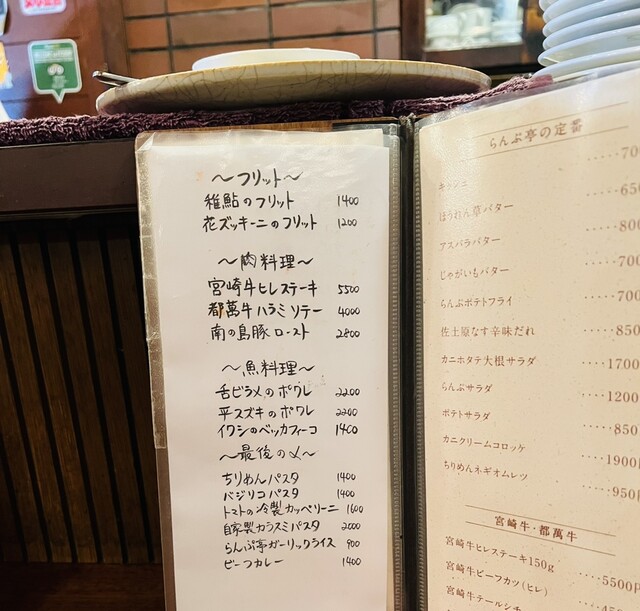 ～フリット～
稚鮎のフリット 1400
花ズッキーニのフリット 1200
～肉料理～
宮崎牛ヒレステーキ 5500
都萬牛ハラミソテー 4000
南の島豚ロースト 2800
～魚料理～
舌ビラメのポワレ 2200
平スズキのポワレ 2200
イワシのベッカフィーコ 1400
～最後の〆～
ちりめんパスタ 1400
バジリコパスタ 1400
トマトの冷製カッペリーニ 1600
自家製カラスミパスタ 2000
らんぷ亭ガーリックライス 900
ビーフカレー 1400
らんぷ亭の定番
キャンニ ・・・・・700
ほうれん草バター ・・・・・650
アスパラバター ・・・・・800
じゃがいもバター ・・・・・700
らんぷポテトフライ ・・・・・700
佐土原なす辛味だれ ・・・・・850
カニホタテ大根サラダ ・・・・1700
らんぷサラダ ・・・・1200
ポテトサラダ ・・・・・850
カニクリームコロッケ ・・・・1900円
ちりめんネギオムレツ ・・・・・950円
宮崎牛・都萬牛
宮崎牛ヒレステーキ150g ・・・・5500円
宮崎牛ビーフカツ(ヒレ)
宮崎牛テールシチ